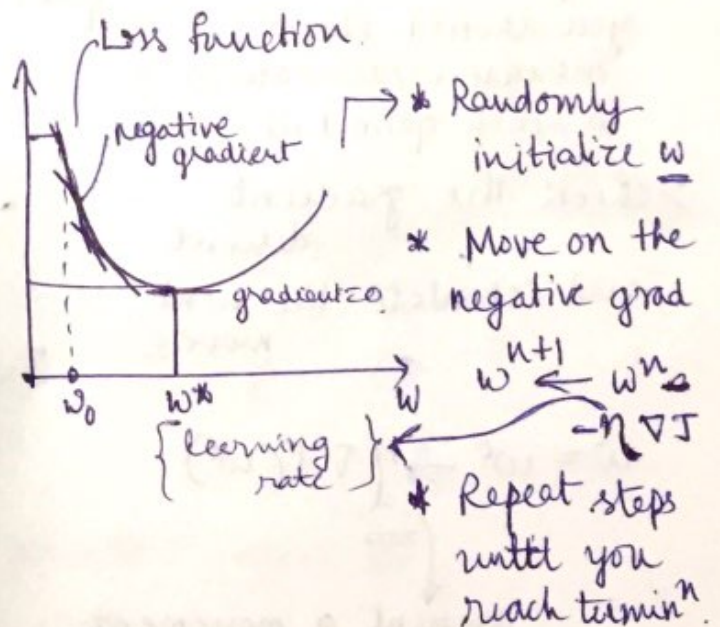 Loss function
negative
gradient
gradient=0
w₀
w*
w
{learning
rate}
* Randomly
initialize w
* Move on the
negative grad
wⁿ⁺¹ ← wⁿ
-η∇J
* Repeat steps
until you
reach terminⁿ.